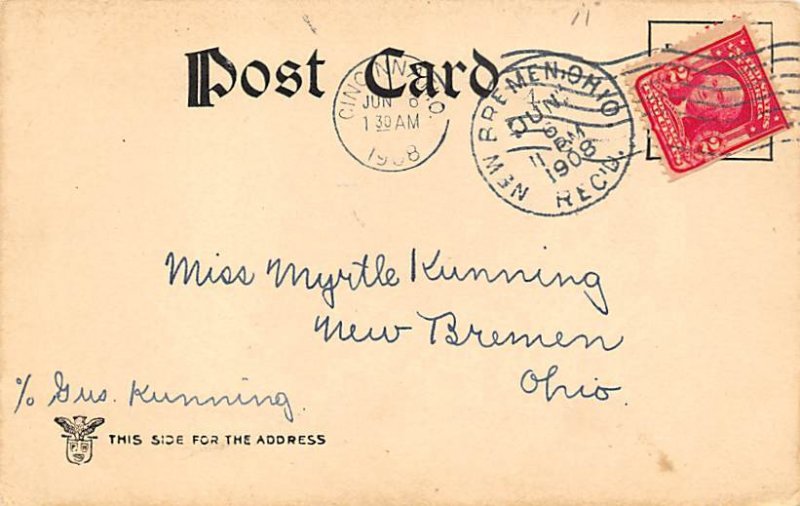 Post Card
CINCINNATI, O.
JUN 6
1 30 AM
1908
NEW BREMEN, OHIO
JUN
11 AM
1908
REC'D.
2 2
Miss Myrtle Kunning
New Bremen
Ohio.
% Gus. Kunning.
THIS SIDE FOR THE ADDRESS